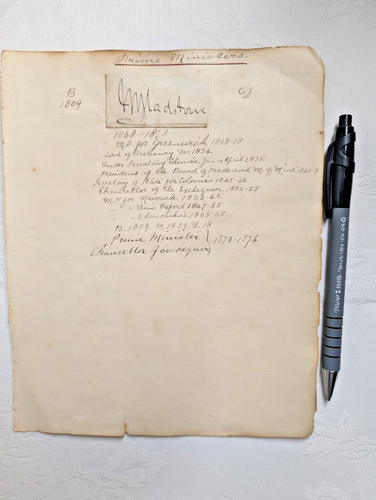 Prime Ministers.
B
1809
WGladstone
D
1868-1873
M.P for Greenwich 1868-18
Lord of Treasury Dec 1834.
Under Secretary Colonies, Jan - April 1835.
President of the Board of Trade and M. of Mint. 1841-3
Secretary of State for Colonies 1845-46
Chancellor of the Exchequer. 1852-55
M.P for Newark. 1832-45.
" Univ Oxford 1847-65
" S. Lancashire 1865-68.
B. 1809. M. 1839. D. 18
Prime Minister } 1873-1874
Chancellor of Exchequer